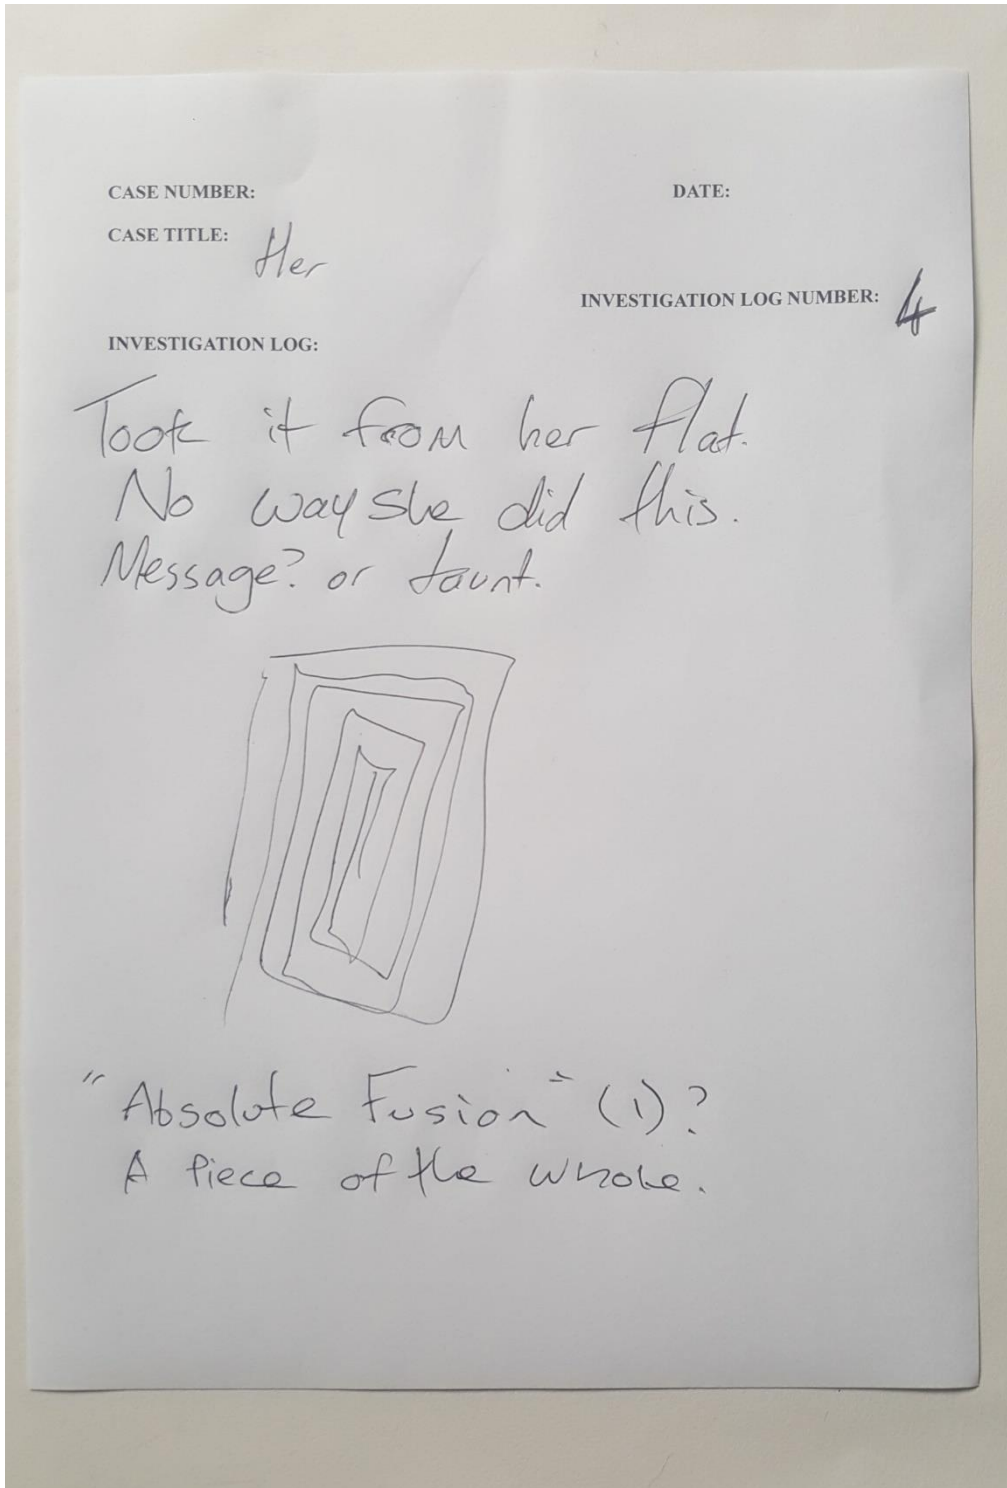 CASE NUMBER:
DATE:
CASE TITLE: Her
INVESTIGATION LOG NUMBER: 4
INVESTIGATION LOG:
Took it from her flat.
No way she did this.
Message? or taunt.
"Absolute Fusion" (1)?
A piece of the whole.